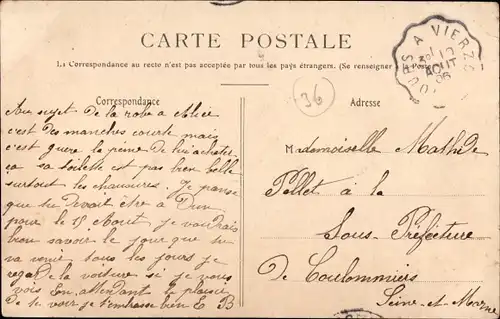 CARTE POSTALE
La Correspondance au recto n'est pas acceptée par tous les pays étrangers. (Se renseigner à la Poste)
TOURS A VIERZON
AOUT
06
36
Correspondance
Au sujet de la robe a Alice
c'est des manches courte mais
c'est guère la peine de lui acheter
ca sa toilette est pas bien belle
surtout les chaussures. Je pense
que tu devait être à Dun
pour le 15 Aout je voudrais
bien savoir le jour que tu
va venir tous les jours je
regarde la voiture si je vous
vois. En attendant le plaisir
de te voir je t'embrasse bien E B
Adresse
Mademoiselle Mathilde
Pellet à la
Sous-Préfecture
De Coulommiers
Seine-et-Marne